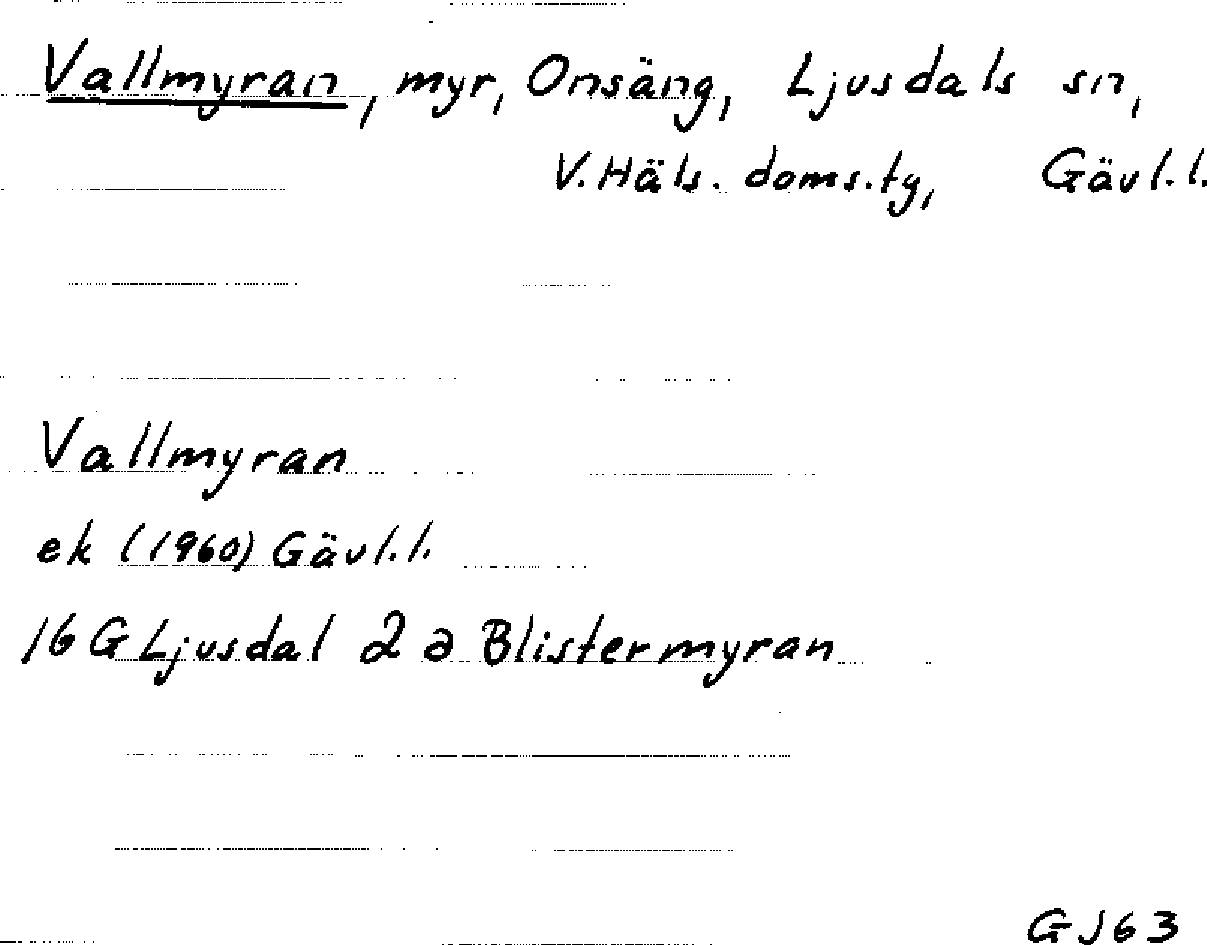 Vallmyran, myr, Onsäng, Ljusdals sn,
V. Häls. doms.tg, Gävl.l.
Vallmyran
ek (1960) Gävl.l.
16 G Ljusdal 2 a Blistermyran
GJ63